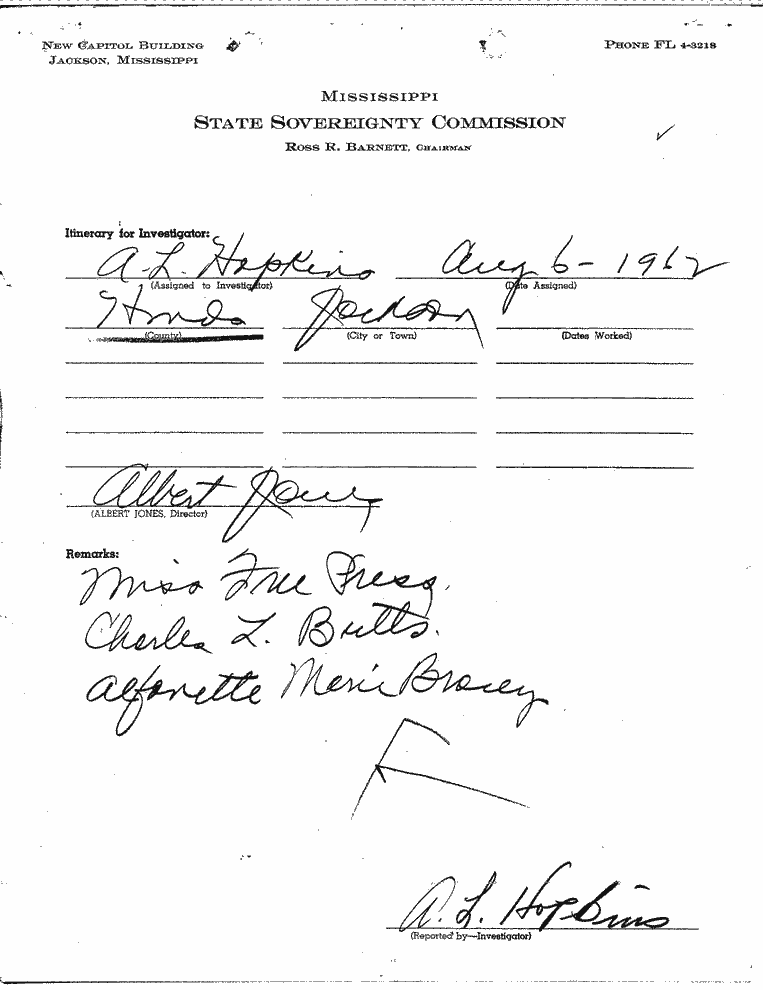 NEW CAPITOL BUILDING
JACKSON, MISSISSIPPI
PHONE FL 4-3218
MISSISSIPPI
STATE SOVEREIGNTY COMMISSION
ROSS R. BARNETT, CHAIRMAN
Itinerary for Investigator:
A. L. Hopkins Aug 6 - 1962
(Assigned to Investigator) (Date Assigned)
Hinds Jackson
(County) (City or Town) (Dates Worked)
Albert Jones
(ALBERT JONES, Director)
Remarks:
Miss Free Press.
Charles L. Butts.
Alfonette Marie Bracey
A. L. Hopkins
(Reported by—Investigator)